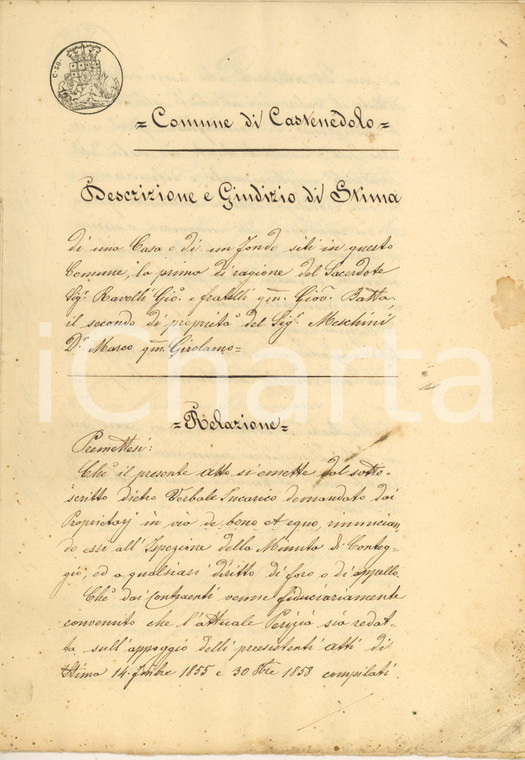 C. 50.
= Comune di Castenedolo =
Descrizione e Giudizio di Stima
di una Casa e di un fondo siti in questo
Comune, la prima di ragione del Sacerdote
Sigr. Ravelli Gio. e fratelli qm. Giov. Batta,
il secondo di proprietà del Sigr. Meschini
Dr. Marco qm. Girolamo =
iCharta
= Relazione =
Premettesi:
Che il presente atto si emette dal sotto-
scritto dietro Verbale Incarico demandato dai
Proprietarj in via de bono et equo, rinuncian-
do essi all'Ispezione della Minuta di Conteg-
gio, ed a qualsiasi diritto di foro o di appello.
Che dai Contraenti venne fiduciariamente
convenuto che l'attuale Perizia sia redat-
ta sull'appoggio delli preesistenti atti di
Stima 14 1855 e 30 1858 compilati